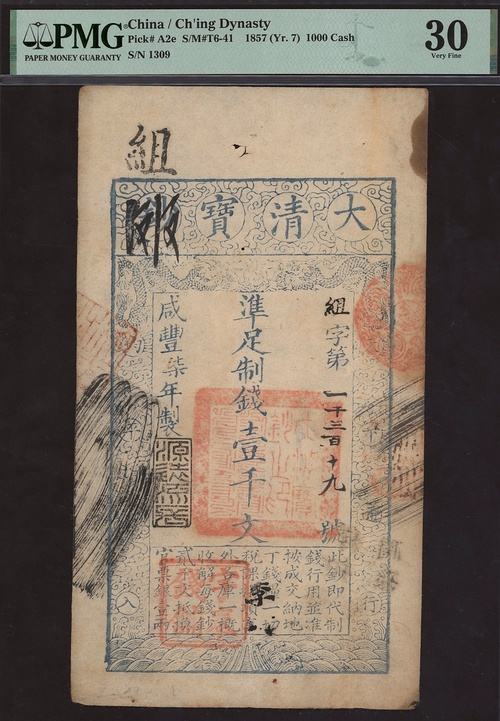 PMG
PAPER MONEY GUARANTY
China / Ch'ing Dynasty
Pick# A2e S/M#T6-41 1857 (Yr. 7) 1000 Cash
S/N 1309
30
Very Fine
組
大清寶
組字第一千三百十九號
準足制錢壹千文
咸豐柒年製
源遠流長
此鈔即代制
錢行用並准
按成交納地
丁錢一切
税課
外各庫一概
收解每錢鈔
貳千文抵換
官票銀壹兩
通行
入